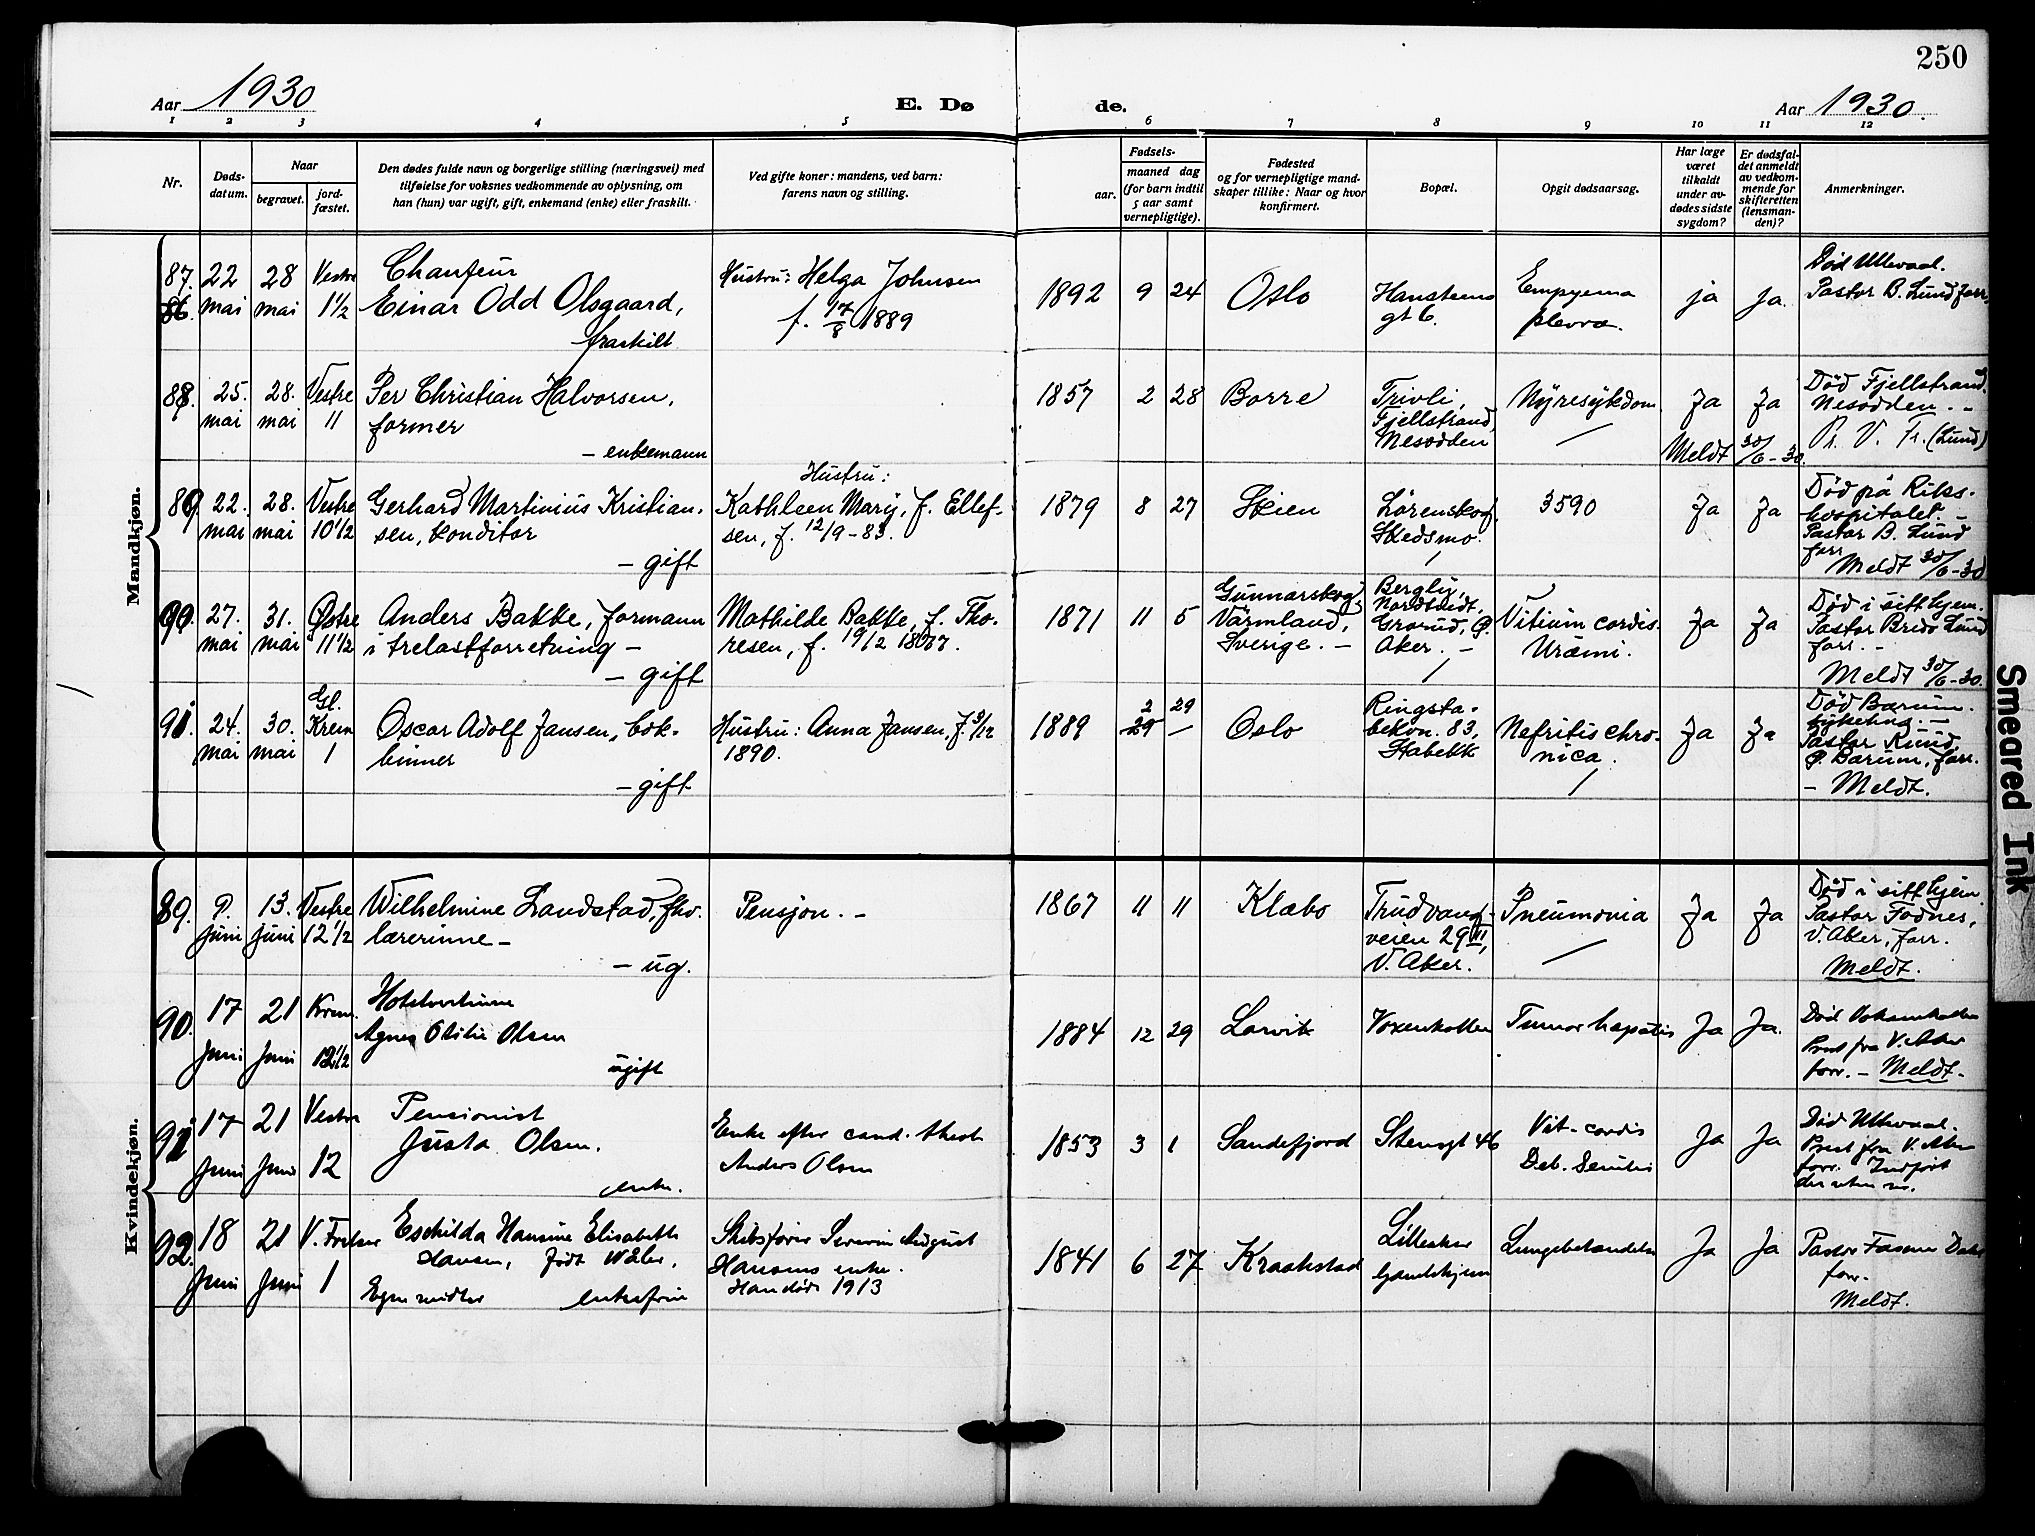 250
Aar 1930 E. Dø de. Aar 1930.
1 2 3 4 5 6 7 8 9 10 11 12
Nr.
Døds-
datum.
Naar
begravet.
jord-
fæstet.
Den dødes fulde navn og borgerlige stilling (næringsvei) med
tilføielse for voksnes vedkommende av oplysning, om
han (hun) var ugift, gift, enkemand (enke) eller fraskilt.
Ved gifte koner: mandens, ved barn:
farens navn og stilling.
Fødsels-
aar.
maaned dag
(for barn indtil
5 aar samt
vernepligtige).
Fødested
og for vernepligtige mand-
skaper tillike: Naar og hvor
konfirmert.
Bopæl.
Opgit dødsaarsag.
Har læge
været
tilkaldt
under av-
dødes sidste
sygdom?
Er dødsfal-
det anmeldt
av vedkom-
mende for
skifteretten
(lensman-
den)?
Anmerkninger.
Mandkjøn.
87.
86
22
mai
28
mai
Vestre
1 1/2
Chaufeur
Einar Odd Olsgaard,
fraskilt
Hustru: Helga Johnsen
f. 17/8 1889
1892
9
24
Oslo
Hansteens
gt 6.
Empyema
plevræ.
ja
Ja.
Død Ullevaal.
Pastor B. Lund forr.
88.
25.
mai
28.
mai
Vestre
11
Per Christian Halvorsen,
former
- enkemann
1857
2
28
Borre
Trivli,
Fjellstrand,
Nesodden
Nyresykdom
Ja
Ja
Meldt 30/6-30.
Død Fjellstrand
Nesodden. -
Pr. V. Fr. (Lund)
89.
22.
mai
28.
mai
Vestre
10 1/2
Gerhard Martinius Kristian-
sen, konditor
- gift
Hustru:
Kathleen Mary, f. Ellef-
sen, f. 12/9-83.
1879
8
27
Skien
Lørenskog,
Skedsmo.
3590
Ja
Ja
Død på Riks-
hospitalet. -
Pastor B. Lund
forr
Meldt 30/6-30
90.
27.
mai
31.
mai
Østre
11 1/2
Anders Bakke, formann
i trelastforretning -
- gift
Mathilde Bakke, f. Tho-
resen, f. 19/2 1867.
1871
11
5
Gunnarskog,
Värmland,
Sverige. -
Bergly,
Nordtvedt,
Grorud, Ø.
Aker. -
Vitium cordis.
Urämi.
Ja
Ja
Død i sitt hjem.
Pastor Bredo Lund
forr. -
Meldt 30/6-30.
91.
24.
mai
30.
mai
Gl.
Krem
1
Oscar Adolf Jansen, bok-
binner
- gift
Hustru: Anna Jansen, f. 3/12
1890.
1889
2
29
29 -
Oslo
Ringsta-
bekvn. 83,
Stabekk
Nefritis chro-
nica.
Ja
Ja
Død Bærum.
sykehus. -
Pastor Ruud,
Ø. Bærum, forr.
- Meldt.
Kvindekjøn.
89.
9.
juni
13.
juni
Vestre
12 1/2
Wilhelmine Landstad, fhv.
lærerinne -
- ug.
Pensjon. -
1867
11
11
Klæbo
Trudvang-
veien 29 III,
V. Aker.
Pneumonia
Ja
Ja
Død i sitt hjem
Pastor Fodnes,
V. Aker, forr.
Meldt.
90.
17
Juni
21
Juni
Krem.
12 1/2
Hotelvertinne
Agnes Otilie Olsen
ugift
1884
12
29
Larvik
Voxenkollen
Tumor hepatis
Ja
Ja.
Død Voksenkollen
Prest fra V. Aker
forr. - Meldt.
91
17
Juni
21
Juni
Vestre
12
Pensionist
Justa Olsen.
enke.
Enke efter cand. theol
Anders Olsen
1853
3
1
Sandefjord
Stensgt 46
Vit. cordis
Deb. Senilis
Ja
Ja
Død Ullevaal.
Prest fra V. Aker
forr. Indført
92.
18
Juni
21
Juni
V. Frelser
1
Eschilda Hansine Elisabeth
Hansen, født Wåler.
Egne midler enkefrue
Skibsfører Severin August
Hansens enke.
Han døde 1913
1841
6
27
Kraakstad
Lilleaker
Gamlehjem
Lungebetændelse
Ja
Ja
Pastor
forr.
Meldt.
Smeared Ink